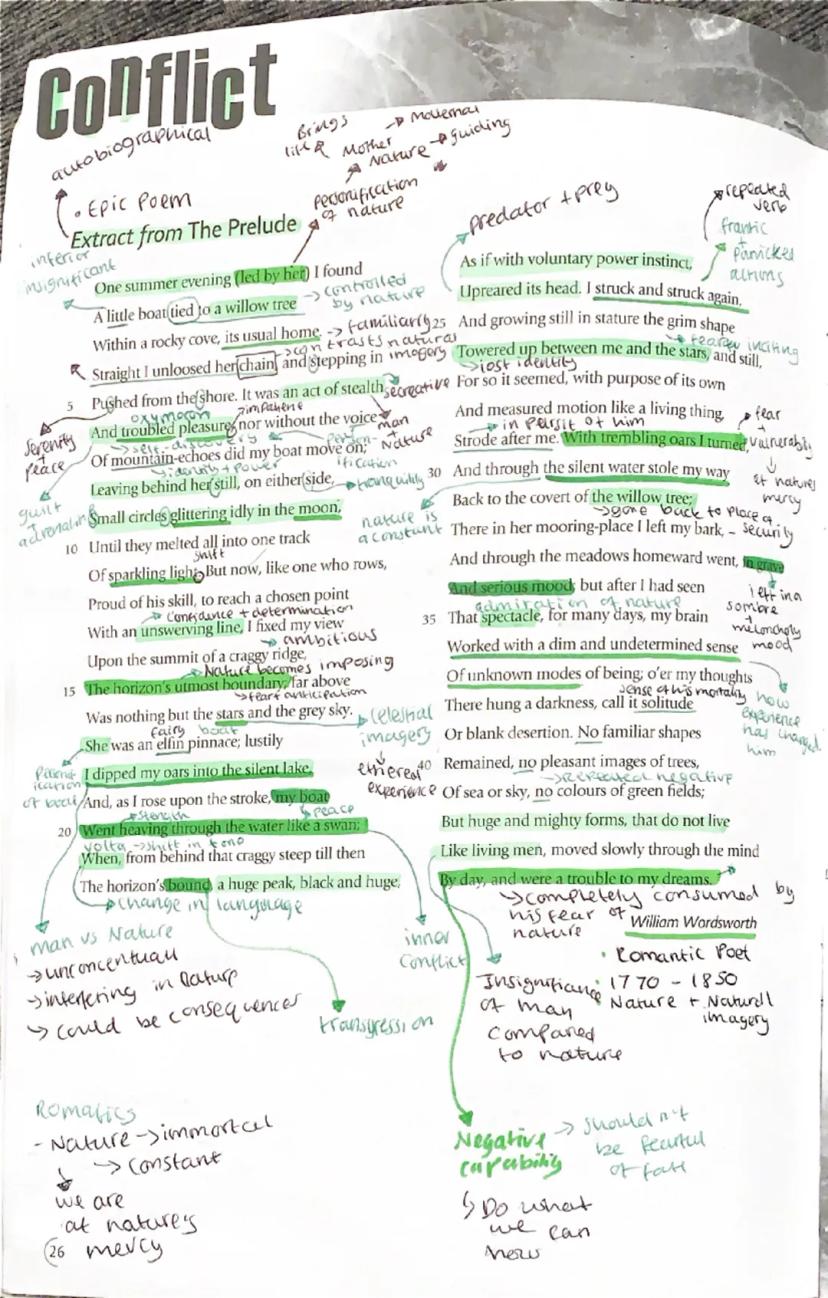 Conflict
autobiographical
• Epic Poem
Brings life
Mother Nature → Maternal
→ guiding
personification of nature
Extract from The Prelude
inferior
insignificant
One summer evening (led by her) I found
A little boat tied to a willow tree
→ controlled by nature
Within a rocky cove, its usual home.
→ familiarry
→ contrasts natural imagery
Straight I unloosed her chain, and stepping in
5 Pushed from the shore. It was an act of stealth
secreative
oxymoron
And troubled pleasure, nor without the voice
man + Nature
serenity + peace
→ self-discovery
Of mountain-echoes did my boat move on;
→ identity + power
personification
Leaving behind her still, on either side,
→ tranquility
guilt + adrenaline
Small circles glittering idly in the moon,
10 Until they melted all into one track
shift
Of sparkling light. But now, like one who rows,
Proud of his skill, to reach a chosen point
→ confidence + determination
With an unswerving line, I fixed my view
→ ambitious
Upon the summit of a craggy ridge,
→ Nature becomes imposing
15 The horizon's utmost boundary; far above
→ fear anticipation
Was nothing but the stars and the grey sky.
→ celestial imagery
↓
ethereal experience
fairy boat
She was an elfin pinnace; lustily
I dipped my oars into the silent lake,
of boat
And, as I rose upon the stroke, my boat
→ strength
→ peace
20 Went heaving through the water like a swan;
volta → shift in tone
When, from behind that craggy steep till then
The horizon's bound, a huge peak, black and huge,
→ change in language
man vs Nature
→ unconcentuall
→ interfering in Nature
→ could be consequences
transgression
inner conflict
Romatics
- Nature → immortal
→ constant
↓
we are
at nature's
mercy
26
predator + prey
repeated verb
frantic + panicked actions
As if with voluntary power instinct,
Upreared its head. I struck and struck again,
25 And growing still in stature the grim shape
→ fear inciting
Towered up between me and the stars, and still,
→ lost identity
For so it seemed, with purpose of its own
And measured motion like a living thing,
→ in persit of him
Strode after me. With trembling oars I turned,
→ fear
+ vulnerability
↓
at natures mercy
30 And through the silent water stole my way
nature is a constant
Back to the covert of the willow tree;
→ gone back to place of security
There in her mooring-place I left my bark, –
And through the meadows homeward went, in grave
And serious mood; but after I had seen
left in a sombre + melancholy mood
admiration of nature
35 That spectacle, for many days, my brain
Worked with a dim and undetermined sense
Of unknown modes of being; o'er my thoughts
sense of his mortality
There hung a darkness, call it solitude
how experience has changed him
Or blank desertion. No familiar shapes
40 Remained, no pleasant images of trees,
→ repeated negative
Of sea or sky, no colours of green fields;
But huge and mighty forms, that do not live
Like living men, moved slowly through the mind
By day, and were a trouble to my dreams.
→ completely consumed by his fear of nature
William Wordsworth
• Romantic Poet
• 1770 - 1850
Nature + Naturall imagery
Insignificance of man compared to nature
Negative capability
→ should n't be fearful of fate
↳ Do what we can now